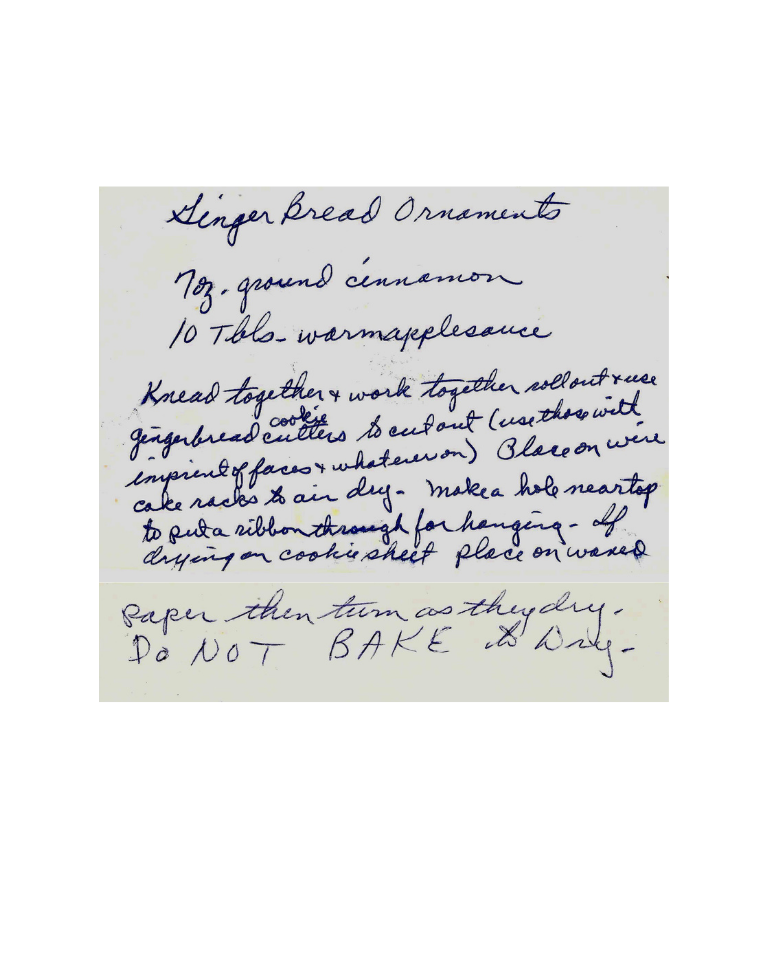 Ginger Bread Ornaments
7oz. ground cinnamon
10 Tbls- warm applesauce
Knead together + work together roll out + use
gingerbread cookie cutters to cut out (use those with
imprient of faces + whatever on) Place on wire
cake racks to air dry - Make a hole near top
to put a ribbon through for hanging - If
drying on cookie sheet place on waxed
paper then turn as they dry.
Do NOT BAKE to Dry -